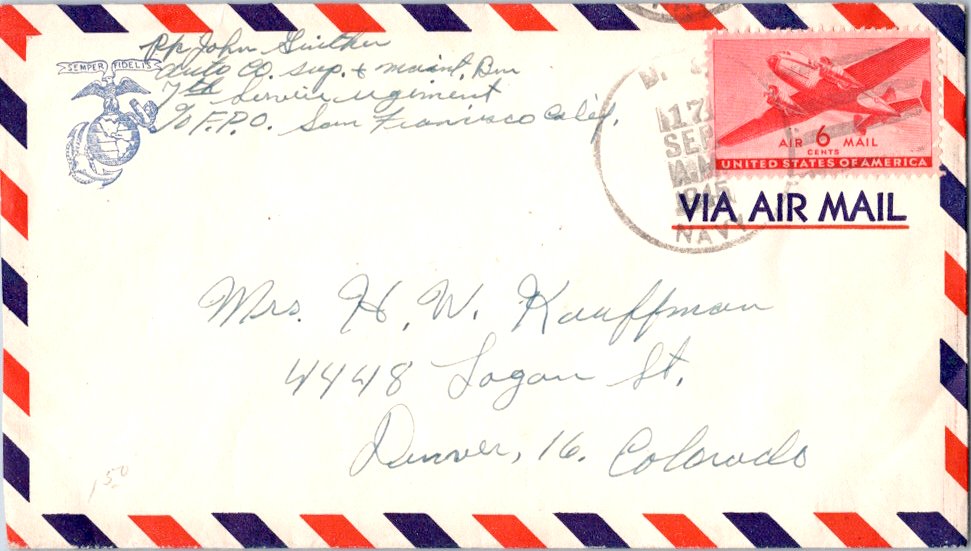 SEMPER FIDELIS
Pfc John
Auto Co. Sup. & Maint. Bn
7th Service regiment
℅ F.P.O. San Francisco Calif.
17
SEP
A.M.
1945
NAVY
AIR 6 MAIL
CENTS
UNITED STATES OF AMERICA
VIA AIR MAIL
Mrs. H. W. Kauffman
4448 Logan St.
Denver, 16. Colorado
150